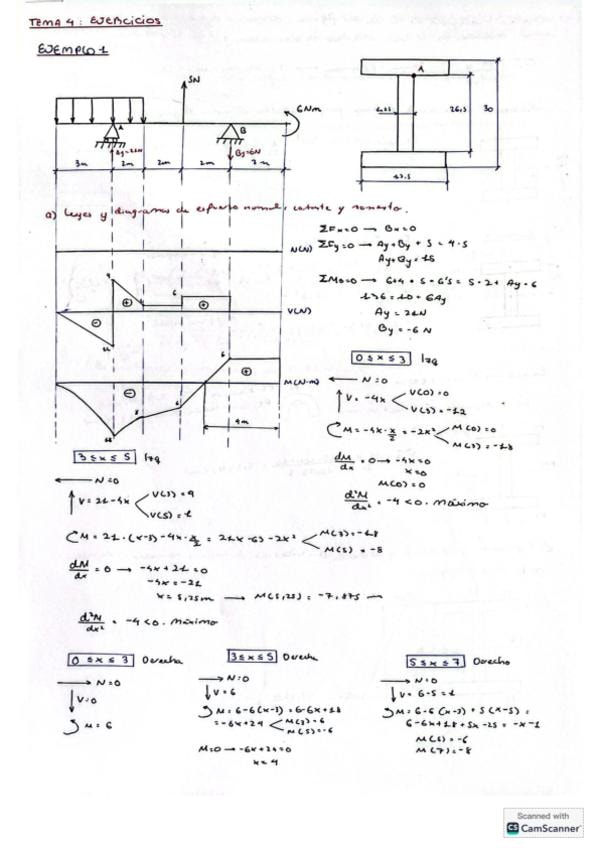 TEMA 4: EJERCICIOS
EJEMPLO 1
5N
6Nm
A
B
By=6N
3m 2m 2m 2m 3m
A
26,5
30
17.5
a) Leyes y diagramas de esfuerzo normal, cortante y momento.
N(N)
9
6
V(N)
6
M(N·m)
4m
ΣFx=0 → Bx=0
ΣFy=0 → Ay+By+5=4·5
Ay+By=15
Ay=21N
By=-6N
0≤x≤3 Izq
N=0
V=-4x V(0)=0
V(3)=-12
M=-4x·x/2=-2x² M(0)=0
M(3)=-18
dM/dx=0 → -4x=0
x=0
M(0)=0
d²M/dx²=-4<0. Máximo
3≤x≤5 Izq
N=0
V=21-4x V(3)=9
V(5)=1
M=21·(x-3)-4x·x/2=21x-63-2x² M(3)=-18
M(5)=-8
dM/dx=0 → -4x+21=0
-4x=-21
x=5,25m → M(5,25)=-7,875
d²M/dx²=-4<0. Máximo
0≤x≤3 Derecha
N=0
V=0
M=6
3≤x≤5 Derecha
N=0
V=6
M=6-6(x-3)=6-6x+18
=-6x+24 M(3)=6
M(5)=-6
M=0 → -6x+24=0
x=4
5≤x≤7 Derecho
N=0
V=6-5=1
M=6-6(x-3)+5(x-5)=
6-6x+18+5x-25=-x-1
M(5)=-6
M(7)=-8
Scanned with
CS CamScanner